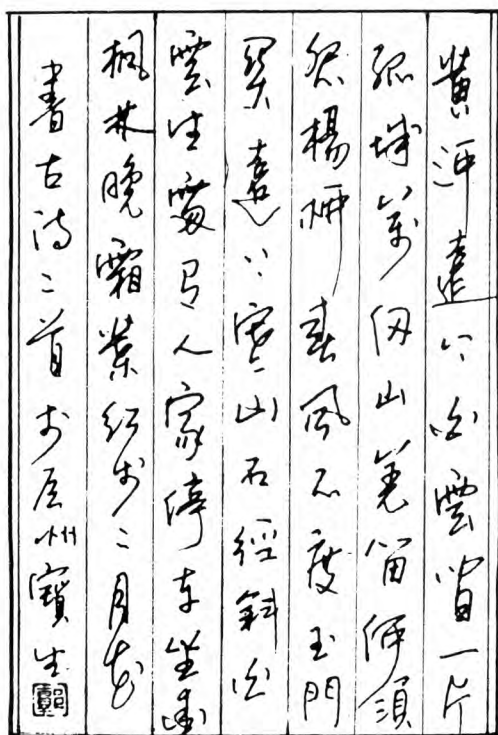 黄河遠上白雲間一片
孤城萬仞山羌笛何須
怨楊柳春風不度玉門
関遠上寒山石經斜白
雲生處有人家停車坐愛
楓林晚霜葉紅於二月花
書古詩二首於州寶生